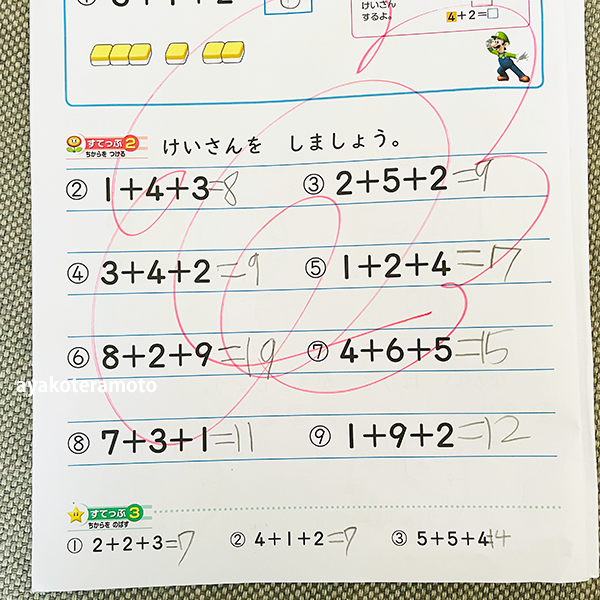 けいさん
するよ。
4+2=□
すてっぷ2 ちからを つける けいさんを しましょう。
② 1+4+3=8 ③ 2+5+2=9
④ 3+4+2=9 ⑤ 1+2+4=7
⑥ 8+2+9=19 ⑦ 4+6+5=15
ayakoteramoto
⑧ 7+3+1=11 ⑨ 1+9+2=12
すてっぷ3
ちからを のばす
① 2+2+3=7 ② 4+1+2=7 ③ 5+5+4=14